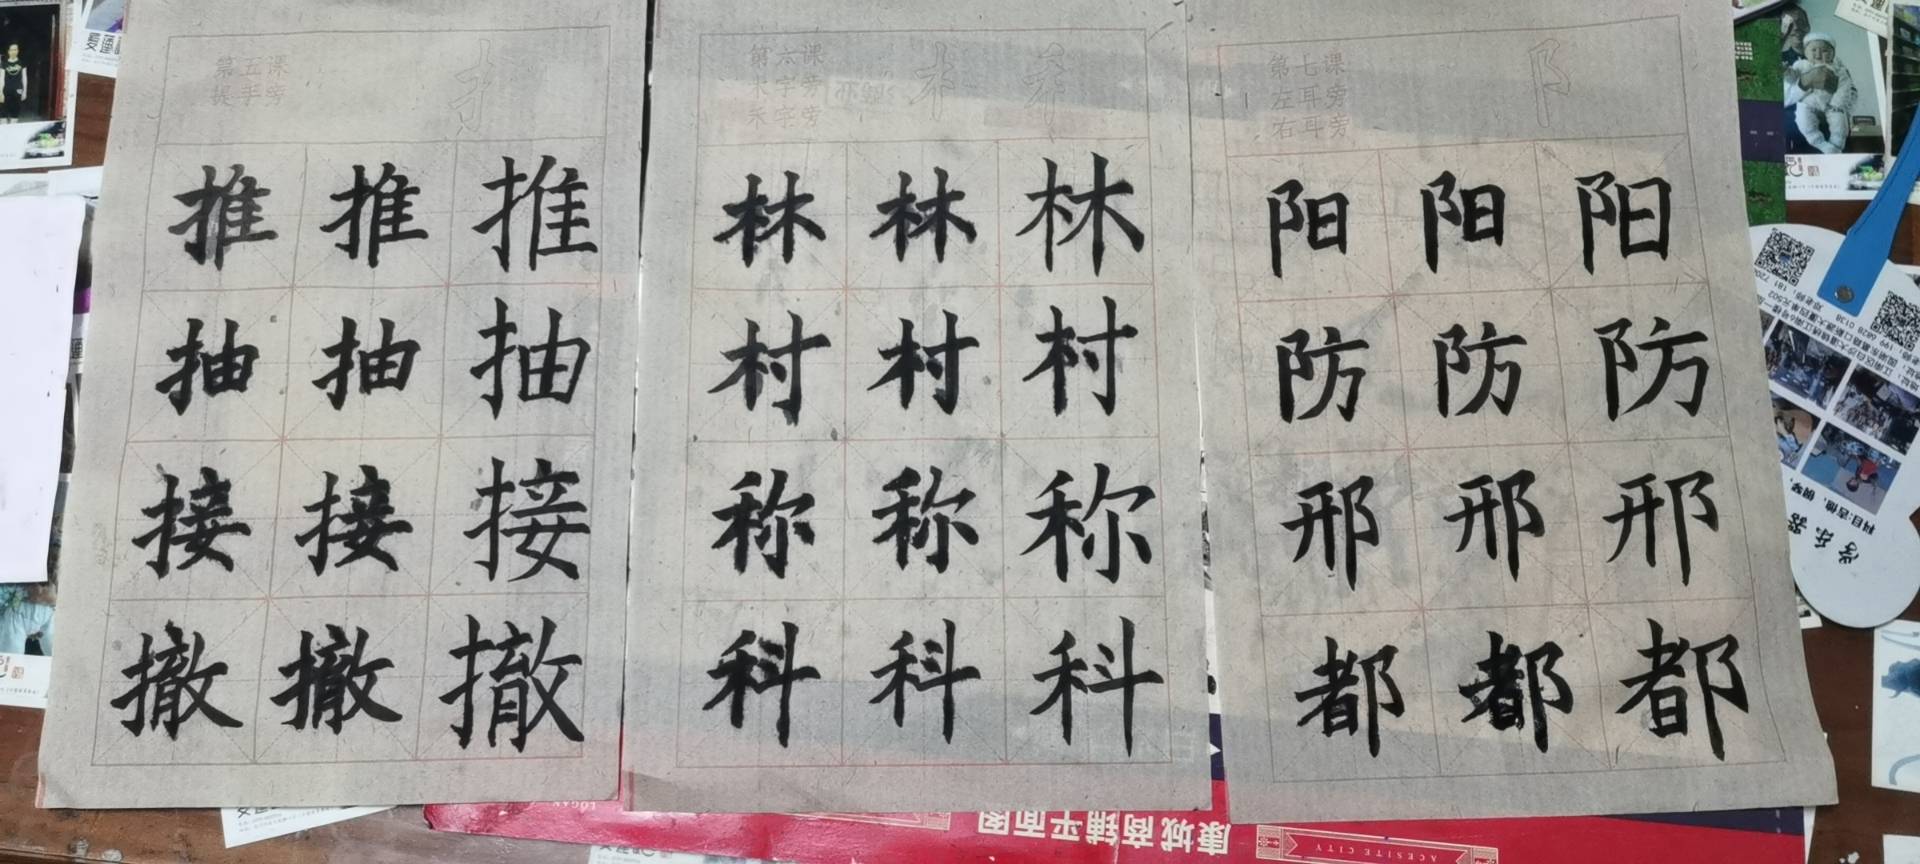 第五课
提手旁
扌
推 推 推
抽 抽 抽
接 接 接
撤 撤 撤
第六课
木字旁
禾字旁
木 禾
林 林 林
村 村 村
称 称 称
科 科 科
第七课
左耳旁
右耳旁
阝
阳 阳 阳
防 防 防
邢 邢 邢
都 都 都
康城商铺平面图
ACESITE CITY
LOGAN